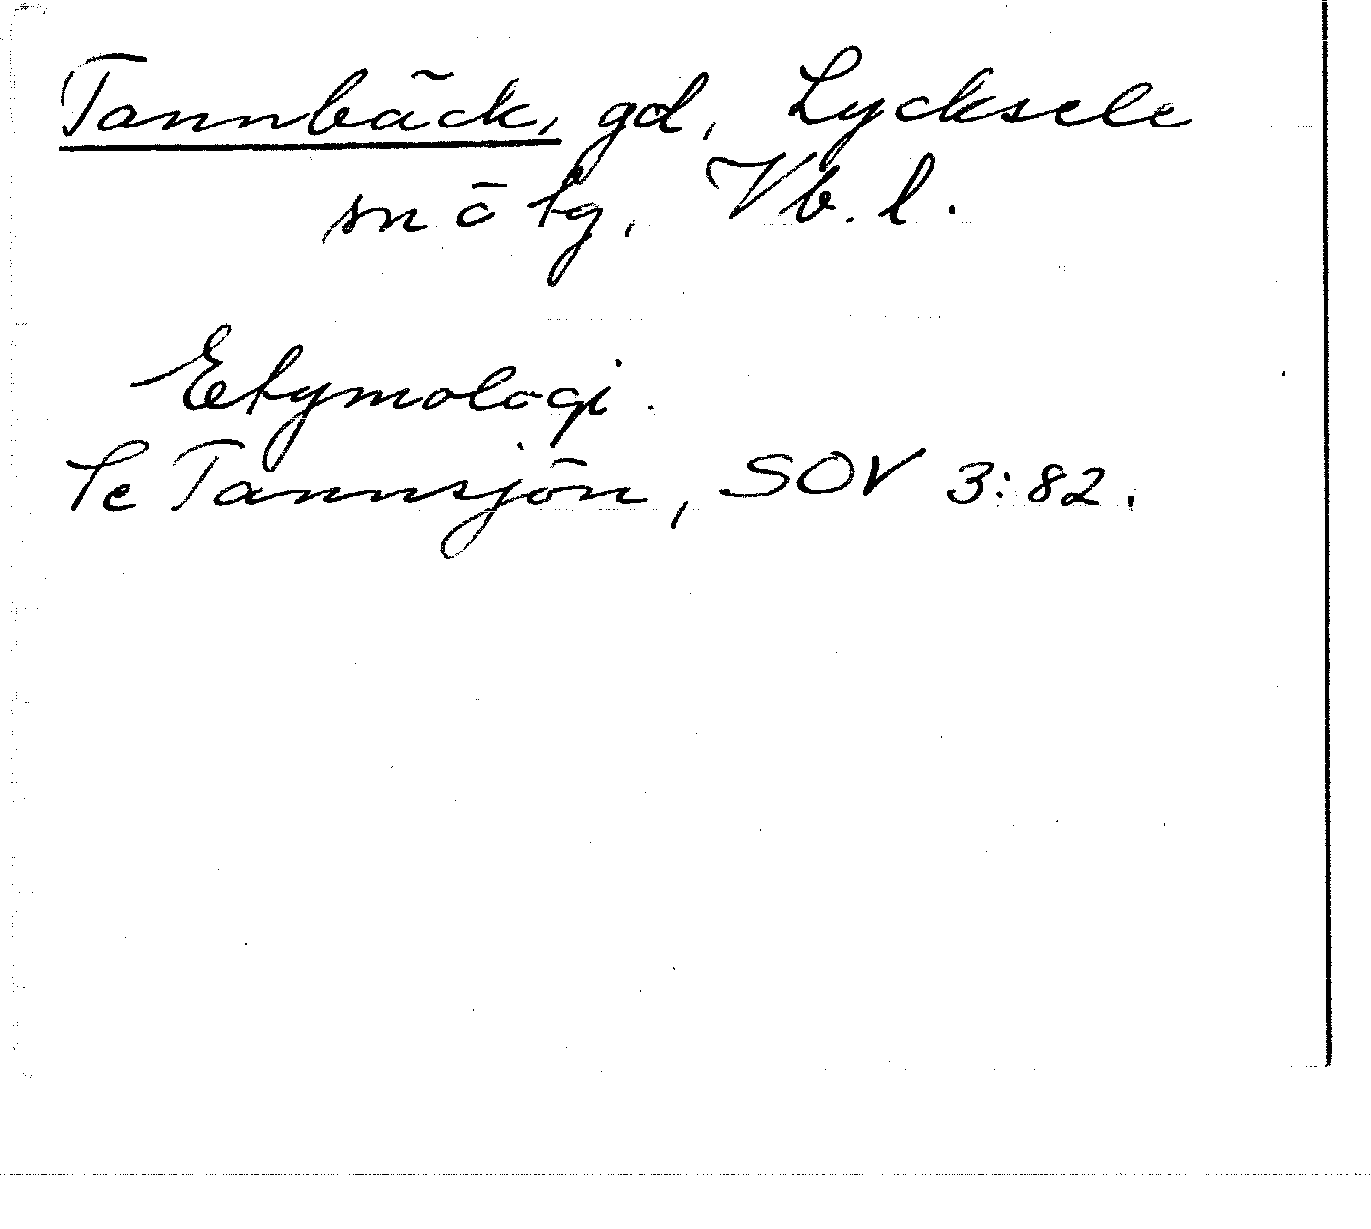 Tannbäck, gd, Lycksele
sn o tg, Vb. l.
Etymologi.
Se Tannsjön, SOV 3:82.